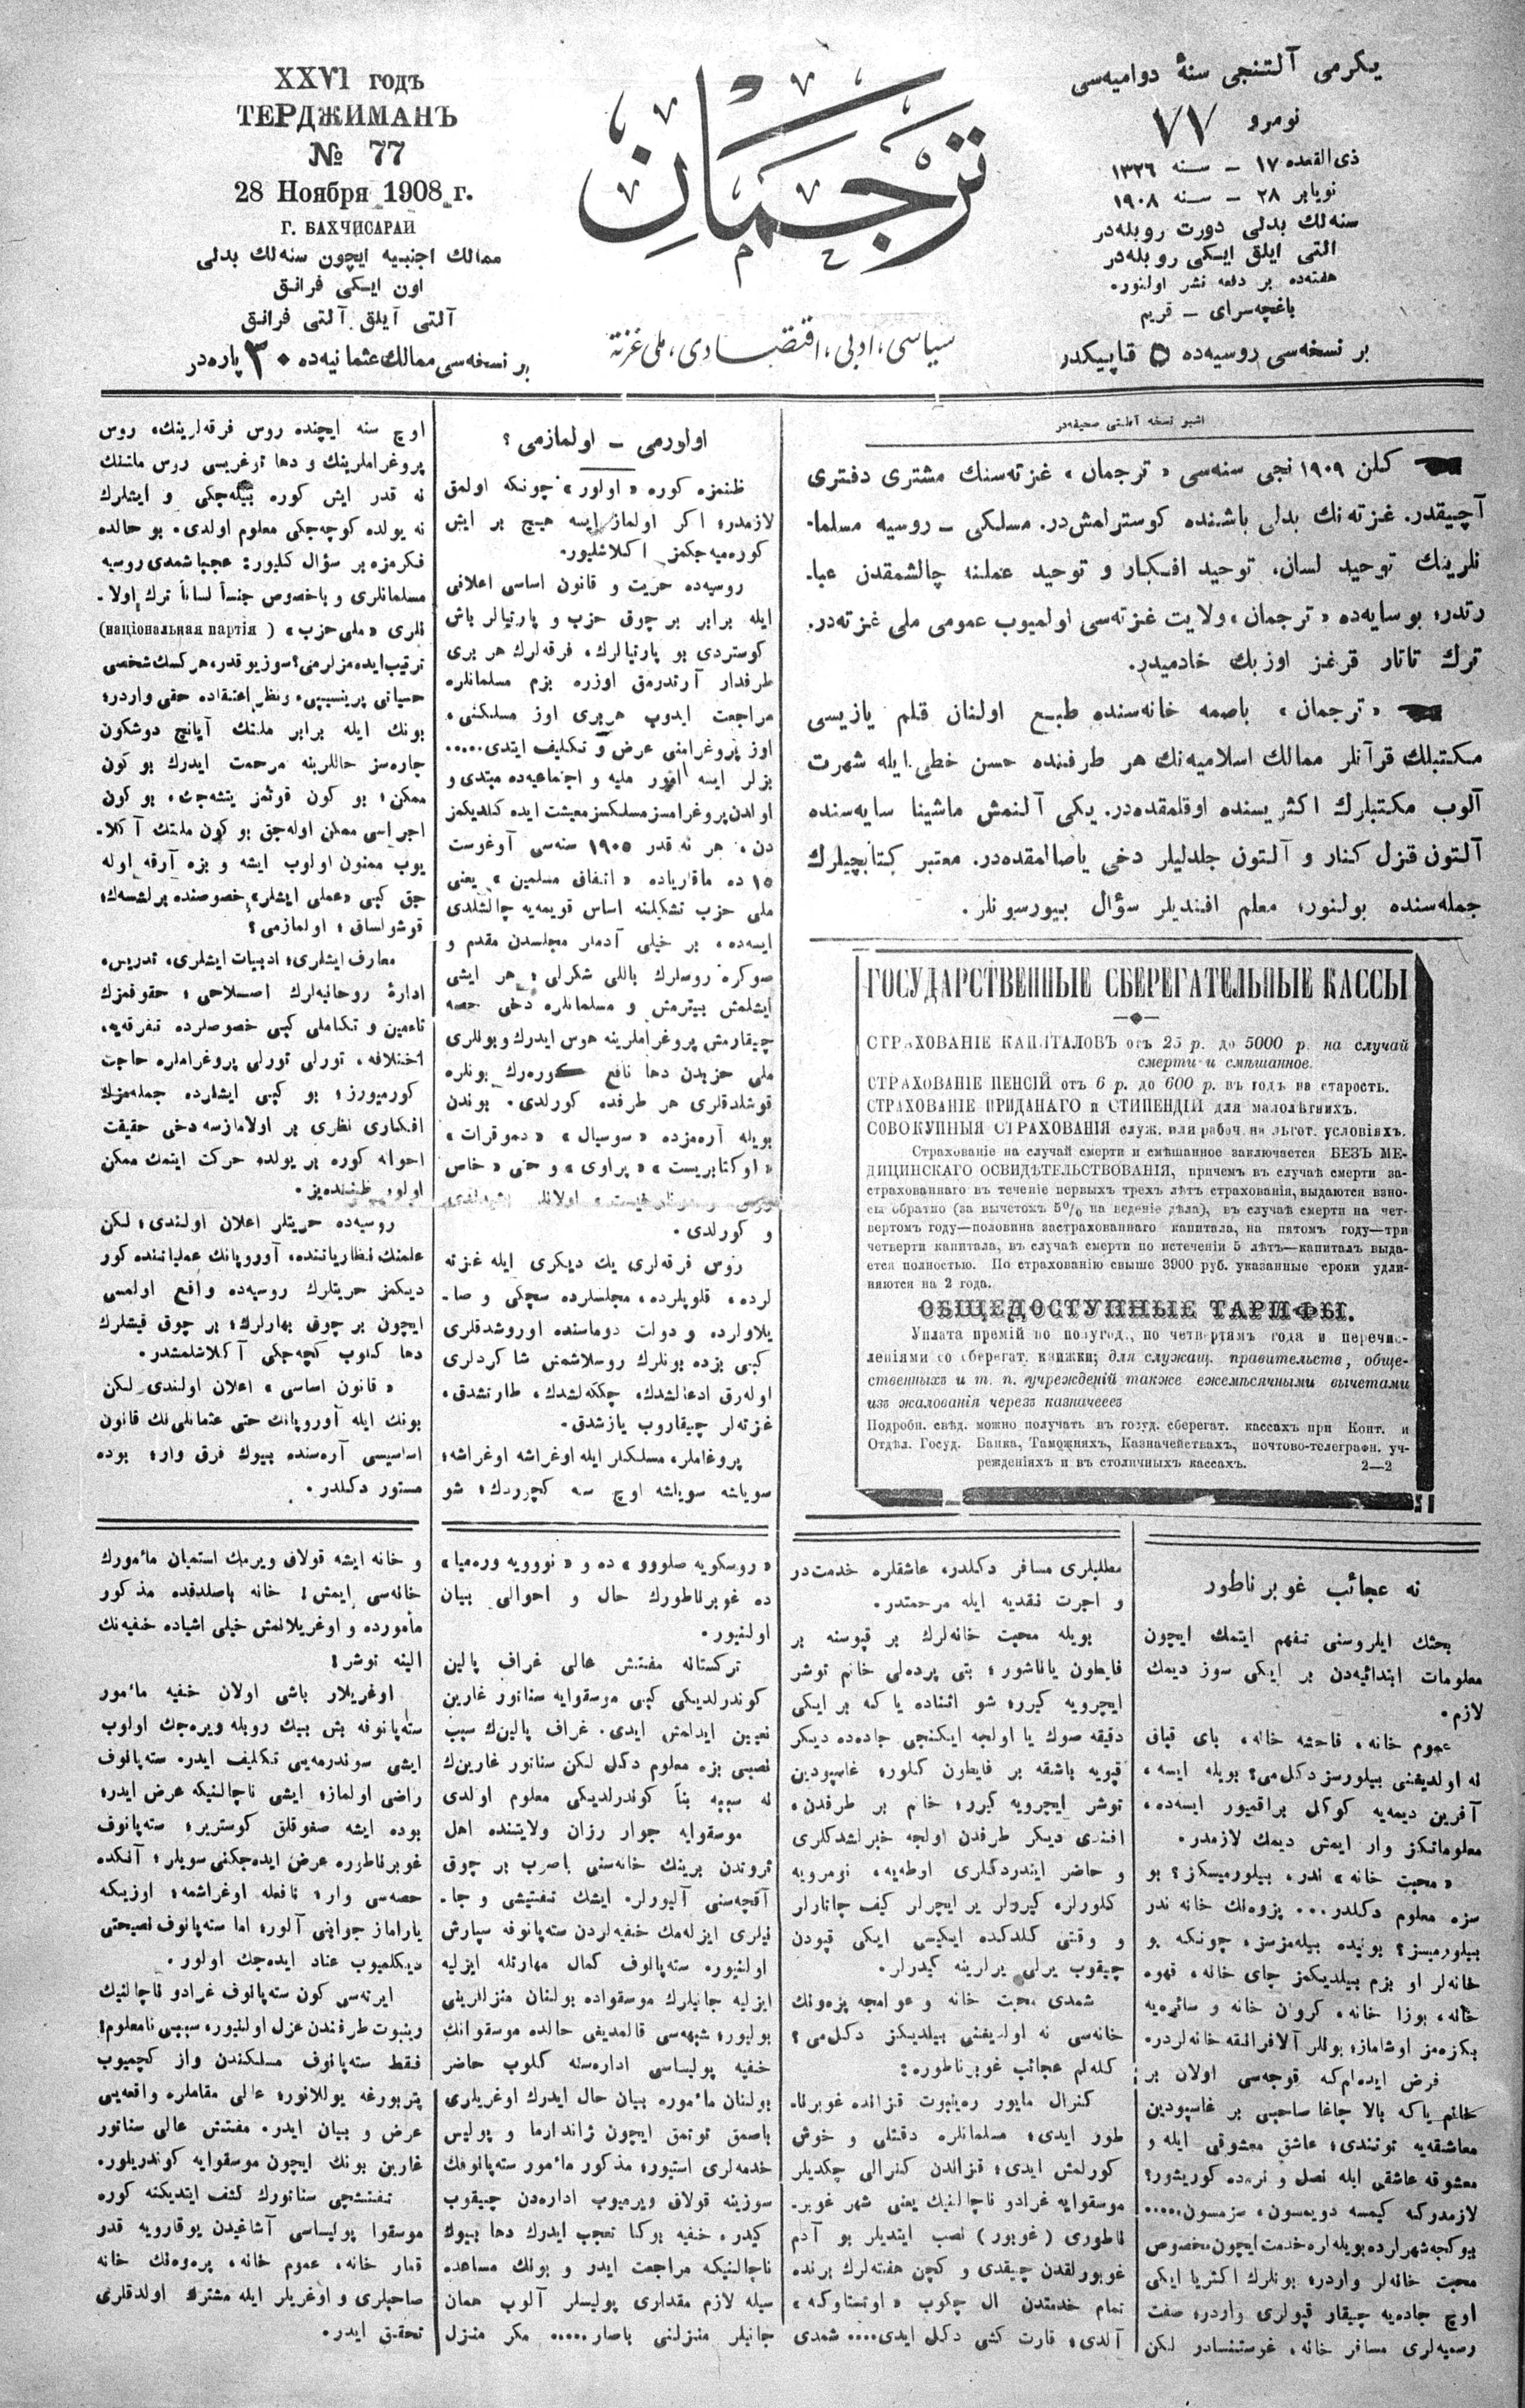 XXVI годъ
ТЕРДЖИМАНЪ
№ 77
28 Ноября 1908 г.
Г. БАХЧИСАРАЙ
ممالك اجنبیه ایچون سنه‌لك بدلی
اون ایكی فرانق
آلتی آیلق آلتی فرانق
بر نسخه‌سی ممالك عثمانیه‌ده ۳۰ پاره‌در
ترجمان
سیاسی، ادبی، اقتصادی، ملی غزته
یكرمی آلتنجی سنهٔ دوامیه‌سی
نومرو ۷۷
ذی القعده ۱۷ – سنه ۱۳۲۶
نویابر ۲۸ – سنه ۱۹۰۸
سنه‌لك بدلی دورت روبله‌در
التی ایلق ایكی روبله‌در
هفته‌ده بر دفعه نشر اولنور.
باغچه‌سرای – قریم
بر نسخه‌سی روسیه‌ده ۵ قاپیكدر
اشبو نسخه آلتی صحیفه‌در
كلن ۱۹۰۹ نجی سنه‌سی «ترجمان» غزته‌سنك مشتری دفتری
آچیقدر. غزته‌نك بدلی باشنده كوسترلمش‌در. مسلكی – روسیه مسلما-
نلرینك توحید لسان، توحید افكار و توحید عملنه چالشمقدن عبا-
رتدر؛ بو سایه‌ده «ترجمان» ولایت غزته‌سی اولمیوب عمومی ملی غزته‌در.
ترك تاتار قرغز اوزبك خادمیدر.
«ترجمان» باصمه خانه‌سنده طبع اولنان قلم یازیسی
مكتبلك قرآنلر ممالك اسلامیه‌نك هر طرفنده حسن خطی ایله شهرت
آلوب مكتبلرك اكثریسنده اوقلمقده‌در. یكی آلنمش ماشینا سایه‌سنده
آلتون قزل كنار و آلتون جلدلیلر دخی یاصالمقده‌در. معتبر كتابچیلرك
جمله‌سنده بولنور؛ معلم افندیلر سؤال بیورسونلر.
ГОСУДАРСТВЕННЫЕ СБЕРЕГАТЕЛЬНЫЕ КАССЫ
СТРАХОВАНІЕ КАПИТАЛОВЪ отъ 25 р. до 5000 р. на случай
смерти и смѣшанное.
СТРАХОВАНІЕ ПЕНСІЙ отъ 6 р. до 600 р. въ годъ на старость.
СТРАХОВАНІЕ ПРИДАНАГО и СТИПЕНДІЙ для малолѣтнихъ.
СОВОКУПНЫЯ СТРАХОВАНІЯ служ. или рабоч. на льгот. условіяхъ.
Страхованіе на случай смерти и смѣшанное заключается БЕЗЪ МЕ-
ДИЦИНСКАГО ОСВИДѢТЕЛЬСТВОВАНІЯ, причемъ въ случаѣ смерти за-
страхованнаго въ теченіе первыхъ трехъ лѣтъ страхованія, выдаются взно-
сы обратно (за вычетомъ 5% на веденіе дѣла), въ случаѣ смерти на чет-
вертомъ году—половина застрахованнаго капитала, на пятомъ году—три
четверти капитала, въ случаѣ смерти по истеченіи 5 лѣтъ—капиталъ выда-
ется полностью. По страхованію свыше 3900 руб. указанные сроки удли-
няются на 2 года.
ОБЩЕДОСТУПНЫЕ ТАРИФЫ.
Уплата премій по полугод., по четвертямъ года и перечис-
леніями со сберегат. книжки; для служащ. правительств, обще-
ственныхъ и т. п. учрежденій также ежемѣсячными вычетами
изъ жалованія черезъ казначеевъ
Подробн. свѣд. можно получать въ госуд. сберегат. кассахъ при Конт. и
Отдѣл. Госуд. Банка, Таможняхъ, Казначействахъ, почтово-телеграфн. уч-
режденіяхъ и въ столичныхъ кассахъ. 2—2
اولورمی – اولمازمی؟
ظنمزه كوره «اولور» چونكه اولمق
لازمدر؛ اكر اولماز ایسه هیچ بر ایش
كوره‌میه‌جكمز اكلاشلیور.
روسیه‌ده حریت و قانون اساسی اعلانی
ایله برابر بر چوق حزب و پارتیالر باش
كوستردی بو پارتیالرك، فرقه‌لرك هر بری
طرفدار آرتدرمق اوزره بزم مسلمانلره
مراجعت ایدوب هربری اوز مسلكنی،
اوز پروغرامنی عرض و تكلیف ایتدی.....
بزلر ایسه امور ملیه و اجتماعیه‌ده مبتدی و
اولدن پروغرامسز مسلكسز معیشت ایده كلدیكمز
دن، هر نه قدر ۱۹۰۵ سنه‌سی آوغوست
۱۵ ده ماقاریاده «اتفاق مسلمین» یعنی
ملی حزب تشكیلنه اساس قویمه‌یه چالشلدی
ایسه‌ده، بر خیلی آدملر مجلسدن مقدم و
صوكره روسلرك باللی شكرلی؛ هر ایشی
ایشلمش بیترمش و مسلمانلره دخی حصه
چیقارمش پروغراملرینه هوس ایدرك و بونلری
ملی حزبدن دها نافع كوره‌رك بونلره
قوشلدقلری هر طرفده كورلدی. بوندن
بویله آره‌مزده «سوسیال» «دموقرات»
«اوكتابریست» «پراوی» و حتی «خاص
و كورلدی.
روس فرقه‌لری یك دیكری ایله غزته
لرده، قلوپلرده، مجلسلرده سچكی و صا-
یلاولرده و دولت دوماسنده اوروشدقلری
كبی بزده بونلرك روسلاشمش شاكردلری
اوله‌رق ادعالشدك، چككه‌لشدك، طارتشدق،
غزته‌لر چیقاروب یازشدق.
پروغاملر، مسلكلر ایله اوغراشه اوغراشه؛
سویاشه سویاشه اوچ سنه كچردك؛ شو
اوچ سنه ایچنده روس فرقه‌لرینك، روس
پروغراملرینك و دها توغریسی روس ملتنك
نه قدر ایش كوره بیله‌جكی و ایشلرك
نه یولده كوچه‌جكی معلوم اولدی. بو حالده
فكرمزه بر سؤال كلیور: عجبا شمدی روسیه
مسلمانلری و باخصوص جنساً لساناً ترك اولا-
نلری «ملی حزب» (національная партія)
ترتیب ایده‌مزلرمی؟ سوز یوقدر، هر كسك شخصی
حسیاتی پرینسیپی، ونظر اعتقاده حقی واردر؛
بونك ایله برابر ملتك آیانچ دوشكون
چاره‌سز حاللرینه مرحمت ایدرك بو كون
ممكن؛ بو كون قوتمز یتشه‌جك، بو كون
اجراسی ممكن اوله‌جق بو كون ملتك آكلا-
یوب ممنون اولوب ایشه و بزه آرقه اوله
جق كبی «عملی ایشلر» خصوصنده برلشسه‌ك؛
قوشولساق؛ اولمازمی؟
معارف ایشلری؛ ادبیات ایشلری، تدریس،
ادارهٔ روحانیه‌لرك اصلاحی؛ حقوقمزك
تأمین و تكاملی كبی خصوصلرده تفرقه‌یه،
اختلافه، تورلی تورلی پروغراملره حاجت
كورمیورز؛ بو كبی ایشلرده جمله‌مزك
افكاری نظری بر اولامازسه دخی حقیقت
احواله كوره بر یولده حركت ایتمك ممكن
اولور ظننده‌یز.
روسیه‌ده حریتلر اعلان اولندی؛ لكن
علمنك نظریاتنده، آوروپانك عملیاتنده كور
دیكمز حریتلرك روسیه‌ده واقع اولمسی
ایچون بر چوق بهارلرك؛ بر چوق قیشلرك
دها كلوب كچه‌جكی آكلاشلمشدر.
«قانون اساسی» اعلان اولندی لكن
بونك ایله آوروپانك حتی عثمانلی‌نك قانون
اساسیسی آره‌سنده بیوك فرق وار؛ بوده
مستور دكلدر.
نه عجائب غوبرناطور
بحثك ایلروسنی تفهم ایتمك ایچون
معلومات ابتدائیه‌دن بر ایكی سوز دیمك
لازم.
عموم خانه، فاحشه خانه، بای قباق
نه اولدیغنی بیلورسز دكل‌می؟ بویله ایسه،
آفرین دیمه‌یه كوكل براقمیور ایسه‌ده،
معلوماتكز وار ایمش دیمك لازمدر.
«محبت خانه» ندر، بیلورمیسكز؟ بو
سزه معلوم دكلدر... پزونك خانه ندر
بیلورمیسز؟ بونیده بیله‌مزسز، چونكه بو
خانه‌لر او بزم بیلدیكمز چای خانه، قهوه
خانه، بوزا خانه، كروان خانه و سائره‌یه
بكزه‌مز اوشاماز؛ بونلر آلافرانقه خانه‌لردر.
فرض ایده‌لم‌كه قوجه‌سی اولان بر
خانم یاكه بالا چاغا صاحبی بر غاسپودین
معاشقه‌یه توتندی؛ عاشق معشوقی ایله و
معشوقه عاشقی ایله نصل و نره‌ده كوریشور؟
لازمدركه كیمسه دویمسون، سزمسون.....
بیوكجه شهرلرده بویله‌لره خدمت ایچون مخصوص
محبت خانه‌لر واردر؛ بونلرك اكثریا ایكی
اوچ جاده‌یه چیقار قپولری واردر؛ صفت
رسمیه‌لری مسافر خانه، غوستنتسادر لكن
مطلبلری مسافر دكلدر، عاشقلره خدمت‌در
و اجرت نقدیه ایله مرحمتدر.
بویله محبت خانه‌لرك بر قپوسنه بر
فایطون یاناشور؛ بتی پرده‌لی خانم توشر
ایچرویه كیرر؛ شو اثناده یا كه بر ایكی
دقیقه صوك یا اولجه ایكنجی جاده‌ده دیكر
قپویه باشقه بر فایطون كلور؛ غاسپودین
توشر ایچرویه كیرر؛ خانم بر طرفدن،
افندی دیكر طرفدن اولجه خبرلشدكلری
و حاضر ایتدردكلری اوطه‌یه، نومرویه
كلورلر، كیررلر یر ایچرلر كیف چاتارلر
و وقتی كلدكده ایكیسی ایكی قپودن
چیقوب یرلی یرلرینه كیدرلر.
شمدی محبت خانه و عوامجه پزه‌ونك
خانه‌سی نه اولدیغنی بیلدیكز دكل‌می؟
كله‌لم عجائب غوبرناطوره:
كنرال مایور ره‌ینبوت قزانده غوبرنا-
طور ایدی؛ مسلمانلره دقتلی و خوش
كورلمش ایدی؛ قزاندن كنرالی چكدیلر
موسقوایه غرادو ناچالنیك یعنی شهر غوبر-
ناطوری (غوبور) نصب ایتدیلر بو آدم
غوبورلقدن چیقدی و كچن هفته‌لرك برنده
تمام خدمتدن ال چكوب «اوتستاوكه»
آلدی؛ قارت كشی دكل ایدی.... شمدی
«روسكویه صلووو» ده و «نوویه وره‌میا»
ده غوبرناطورك حال و احوالی بیان
اولنیور.
تركستانه مفتش عالی غراف پالین
كوندرلدیكی كبی موسقوایه سناتور غارین
تعیین ایدلمش ایدی. غراف پالین‌ك سبب
نصبی بزه معلوم دكل لكن سناتور غارین‌ك
نه سببه بناً كوندرلدیكی معلوم اولدی
موسقوایه جوار رزان ولایتنده اهل
ثروتدن برینك خانه‌سنی باصرب بر چوق
آقچه‌سنی آلیورلر. ایشك تفتیشی و جا-
نیلری ایزله‌مك خفیه‌لردن سته‌پانوفه سپارش
اولنیور. سته‌پانوف كمال مهارتله ایزلیه
ایزلیه جانیلرك موسقواده بولنان منزللرینی
بولیور؛ شبهه‌سی قالمدیغی حالده موسقوانك
خفیه پولیساسی اداره‌سنه كلوب حاضر
بولنان مأموره بیان حال ایدرك اوغریلری
باصمق توتمق ایچون ژاندارما و پولیس
خدمه‌لری استیور؛ مذكور مأمور سته‌پانوفك
سوزینه قولاق ویرمیوب اداره‌دن چیقوب
كیدر. خفیه بوكا تعجب ایدرك دها بیوك
ناچالنیكه مراجعت ایدر و بونك مساعده
سیله لازم مقداری پولیسلر آلوب همان
جانیلر منزلنی باصار..... مكر منزل
و خانه ایشه قولاق ویرمك استمیان مأمورك
خانه‌سی ایمش! خانه باصلدقده مذكور
مأمورده و اوغریلانمش خیلی اشیاده خفیه‌نك
الینه توشر!
اوغریلار باشی اولان خفیه مأمور
سته‌پانوفه بش بیك روبله ویره‌جك اولوب
ایشی سوندرمه‌یی تكلیف ایدر. سته‌پانوف
راضی اولماز؛ ایشی ناچالنیكه عرض ایدر؛
بوده ایشه صغوقلق كوستریر؛ سته‌پانوف
غوبرناطوره عرض ایده‌جكنی سویلر؛ آنكده
حصه‌سی وار؛ نافعله اوغراشمه؛ اوزیكه
یاراماز جوابی آلور؛ اما سته‌پانوف نصیحتی
دیكلمیوب عناد ایده‌جك اولور.
ایرته‌سی كون سته‌پانوف غرادو ناچالنیك
رینبوت طرفندن عزل اولنیور، سببسی نامعلوم!
فقط سته‌پانوف مسلكندن واز كچمیوب
پتربورغه یوللانور؛ عالی مقاملره واقعه‌یی
عرض و بیان ایدر. مفتش عالی سناتور
غارین بونك ایچون موسقوایه كوندریلور.
تفتیشچی سناتورك كشف ایتدیكنه كوره
موسقوا پولیساسی آشاغیدن یوقارویه قدر
قمار خانه، عموم خانه، پزه‌ونك خانه
صاحبلری و اوغریلر ایله مشترك اولدقلری
تحقق ایدر.